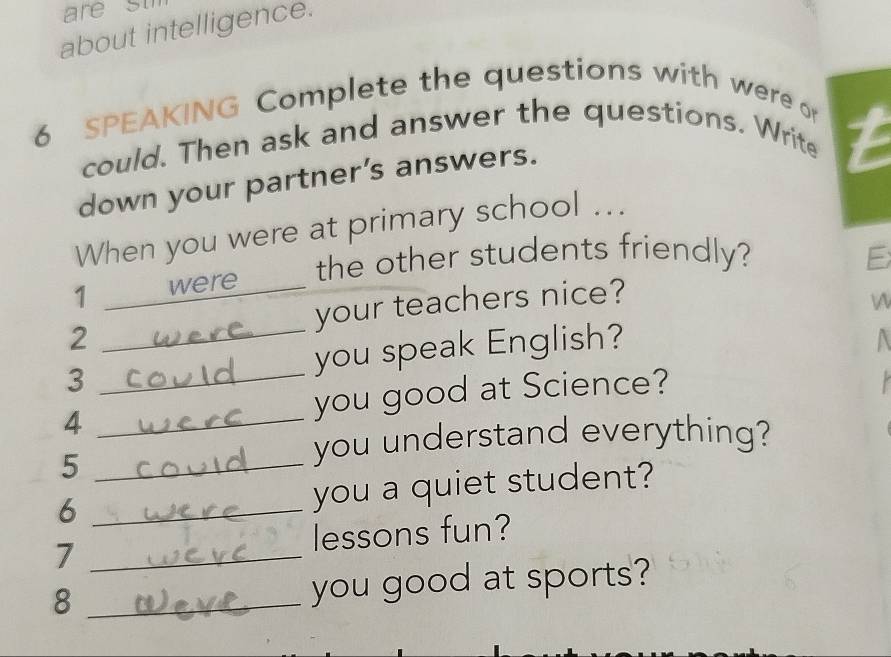 are
about intelligence.
6 SPEAKING Complete the questions with were or
could. Then ask and answer the questions. Write
down your partner's answers.
When you were at primary school ...
1 were the other students friendly?
2 were your teachers nice?
3 could you speak English?
4 were you good at Science?
5 could you understand everything?
6 were you a quiet student?
7 were lessons fun?
8 were you good at sports?